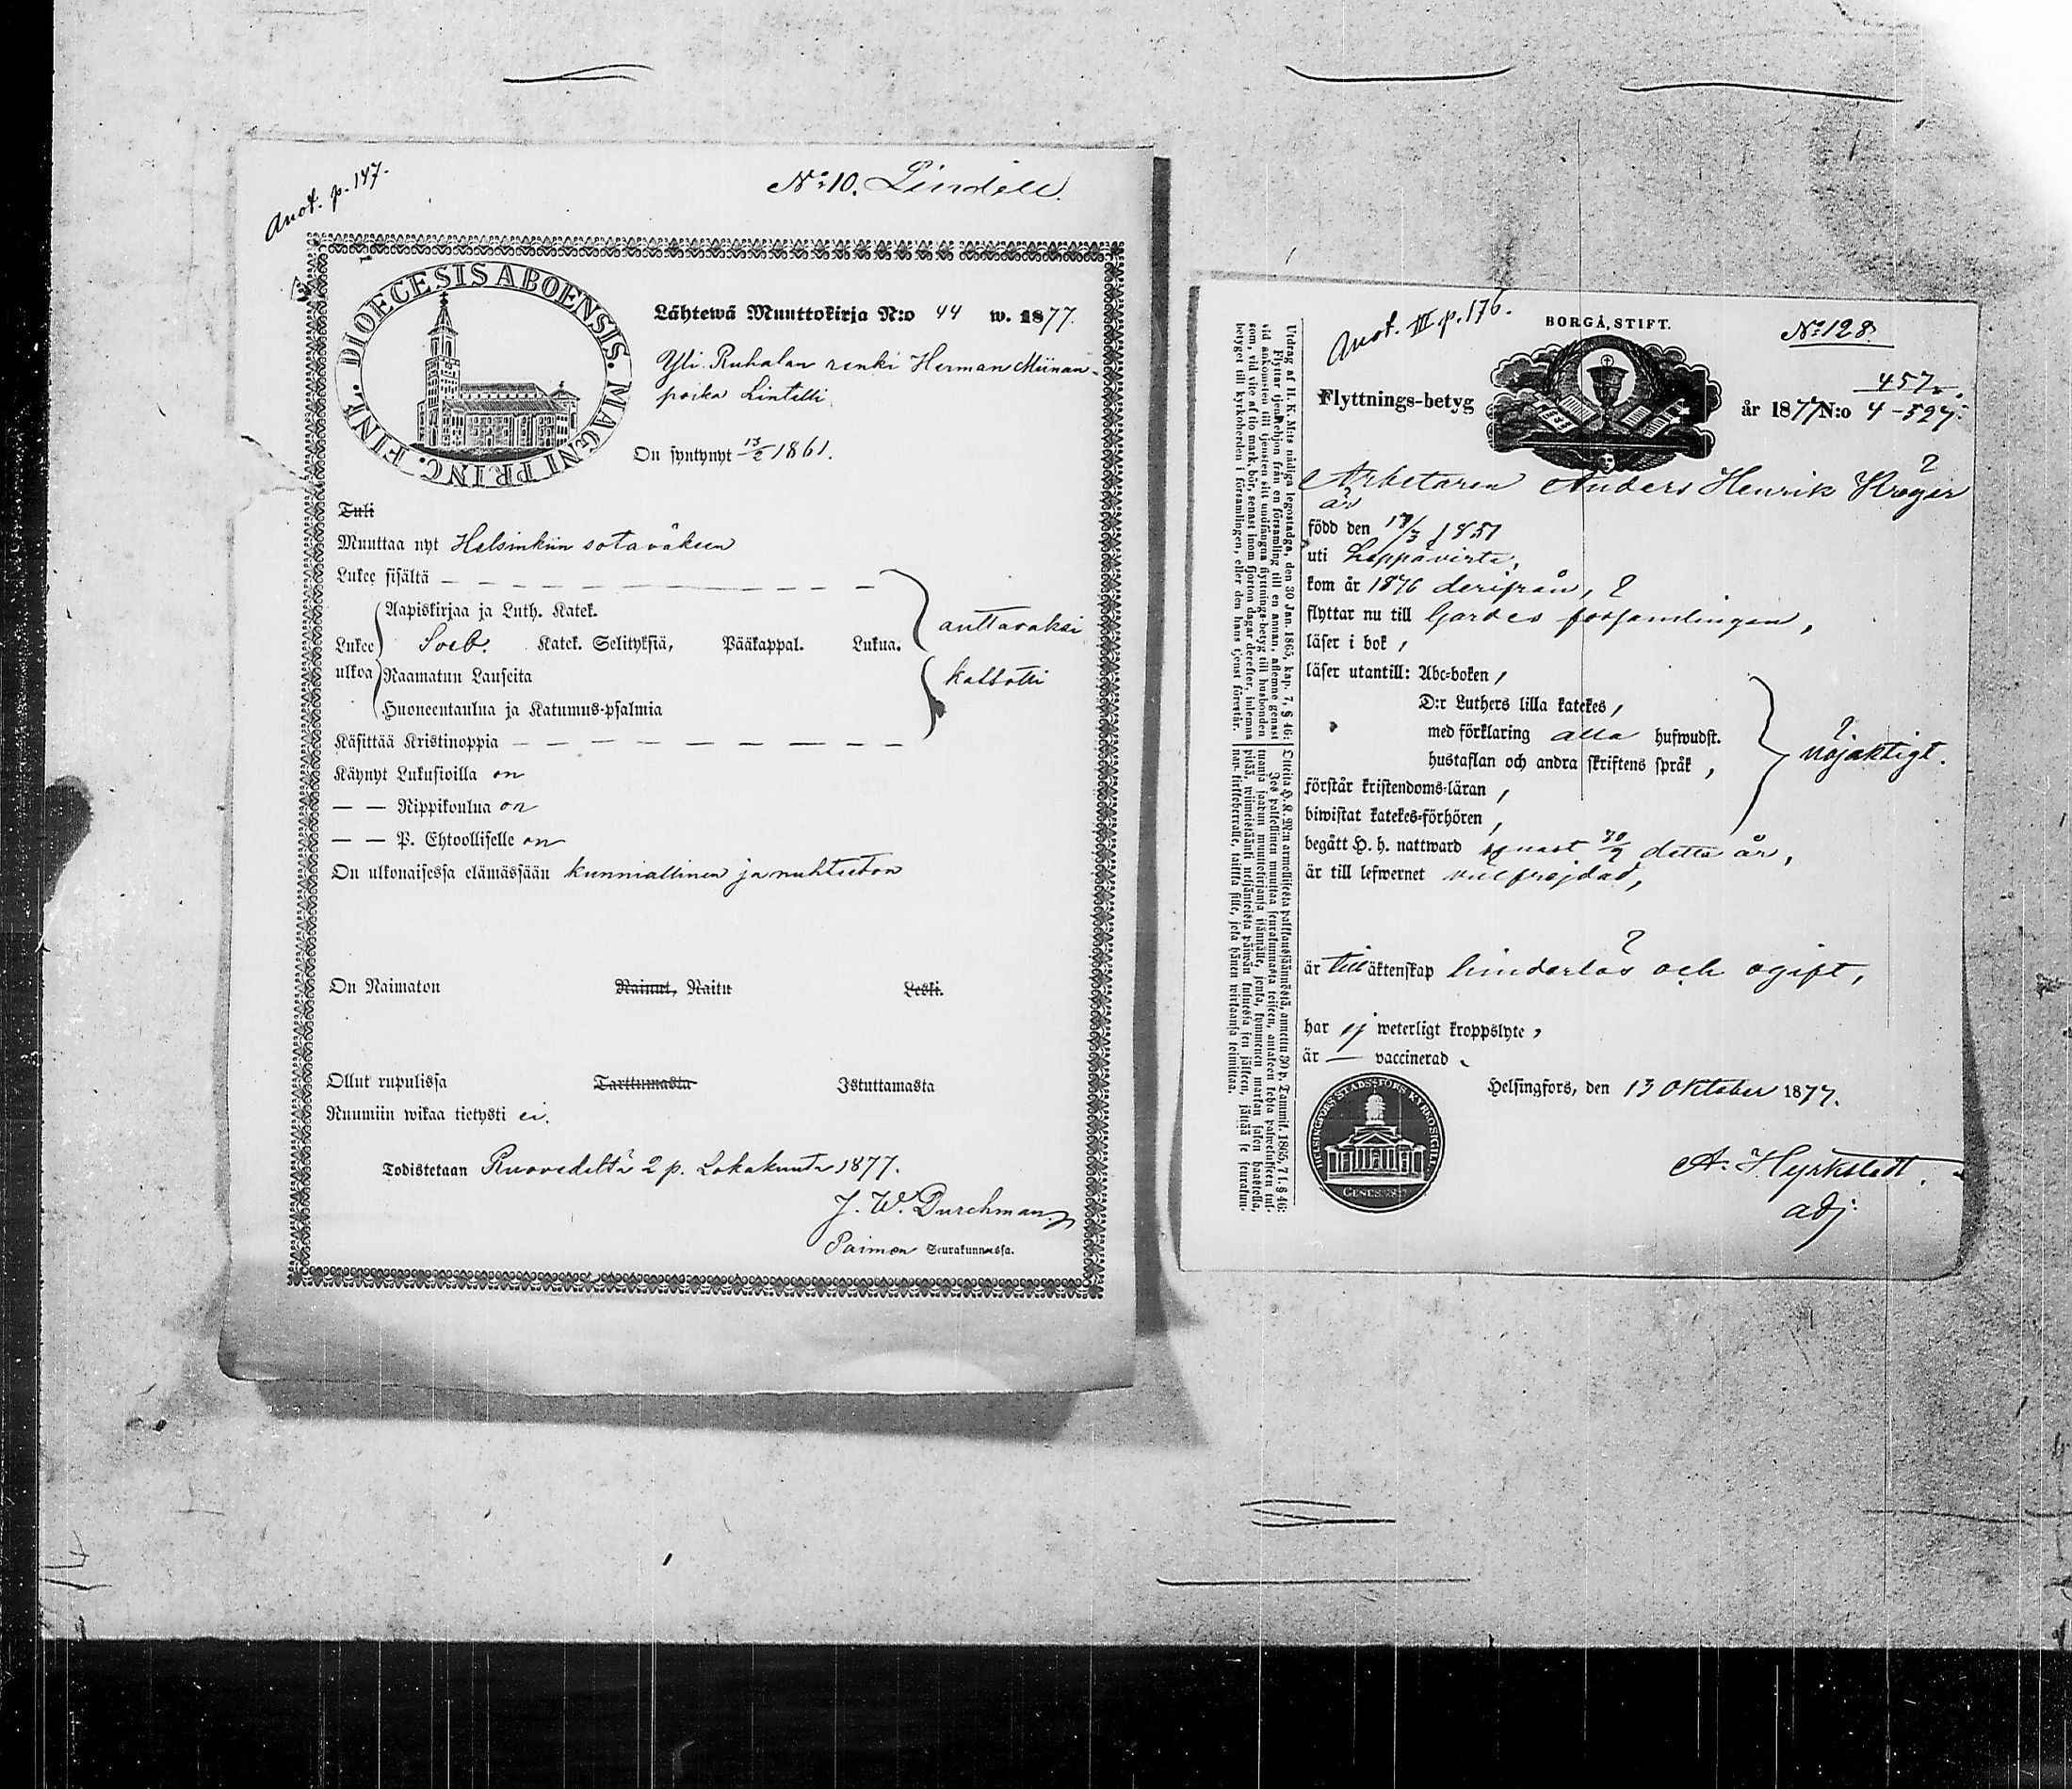 Anot. p. 147.
No 10. Lindell.
DIOECESIS ABOENSIS. MAGNI PRINC. FINL.
Lähtewä Muuttokirja N:o 44 w. 1877.
Yli Ruhalan renki Herman Miinan-
poika Lintelli
On syntynyt 13/2 1861.
Tuli
Muuttaa nyt Helsinkiin sotaväkeen
Lukee sisältä
Aapiskirjaa ja Luth. Katek.
Lukee Sveb. Katek. Selityksiä, Pääkappal. Lukua.
ulkoa Raamatun Lauseita
Huoneentaulua ja Katumus-psalmia
Käsittää Kristinoppia
auttavaksi
kattotti
Käynyt Lukusioilla on
— — Rippikoulua on
— — P. Ehtoollisella on
On ulkonaisessa elämässään kunniallinen ja nuhteeton
On Naimaton Nainut, Naitu Leski.
Ollut rupulissa Tarttumasta Istuttamasta
Ruumiin wikaa tietysti ei.
Todistetaan Ruovedeltä 2 p. Lokakuuta 1877.
J. W. Durchman
Paimen Seurakunnassa.
Anot. III p. 176.
BORGÅ STIFT.
No 128.
457
Flyttnings-betyg år 1877 N:o 4-527.
Arbetaren Anders Henrik Kröger
är
född den 17/3 1851
uti Leppävirta,
kom år 1876 derifrån,
flyttar nu till Gardes församlingen,
läser i bok,
läser utantill: Abc-boken,
D:r Luthers lilla katekes,
med förklaring alla hufwudst.
hustaflan och andra skriftens språk,
nöjaktigt.
förstår kristendoms-läran,
biwistat katekes-förhören,
begått H. h. nattward senast 30/9 detta år,
är till lefwernet välfrejdad,
är till äktenskap hinderlös och ogift,
har ej weterligt kroppslyte,
är — vaccinerad.
Helsingfors, den 13 Oktober 1877.
A. Hyrkstedt.
adj.
HELSINGFORS STADSFÖRS KYRKOSIGILL
Utdrag af H. K. M:ts nådiga legostadga, den 30 Jan. 1865, kap. 7, § 46:
Flyttar tjenstehjon från en församling till en annan, aflemne genast
vid ankomsten till tjensten sitt undfångna flyttnings-betyg till husbonden
som, vid vite af tio mark, bör, senast inom fjorton dagar derefter, inlemna
betyget till kyrkoherden i församlingen, eller den hans tjenst förestår.